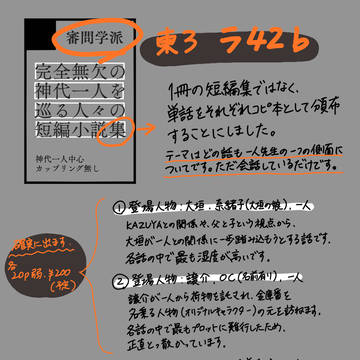 審問学派
東3 ラ42b
完全無欠の
神代一人を
巡る人々の
短編小説集
神代一人中心
カップリング無し
1冊の短編集ではなく、
単話をそれぞれコピ本として頒布
することにしました。
テーマはどの話も一人先生の一つの側面に
ついてです。ただ会話しているだけです。
確実に出ます。
各
20p弱、¥200
(予定)
① 登場人物：大垣、系緒子(大垣の娘)、一人
KAZUYAとの関係や、父と子という視点から、
大垣が一人との関係に一歩踏み込もうとする話です。
各話の中で最も湿度が高いです。
② 登場人物：譲介、OC(名前有り)、一人
譲介が一人から荷物を託され、金庫番を
名乗る人物(オリジナルキャラクター)の元を訪ねます。
各話の中で最もプロットに難行したため、
正直とっ散かっています。